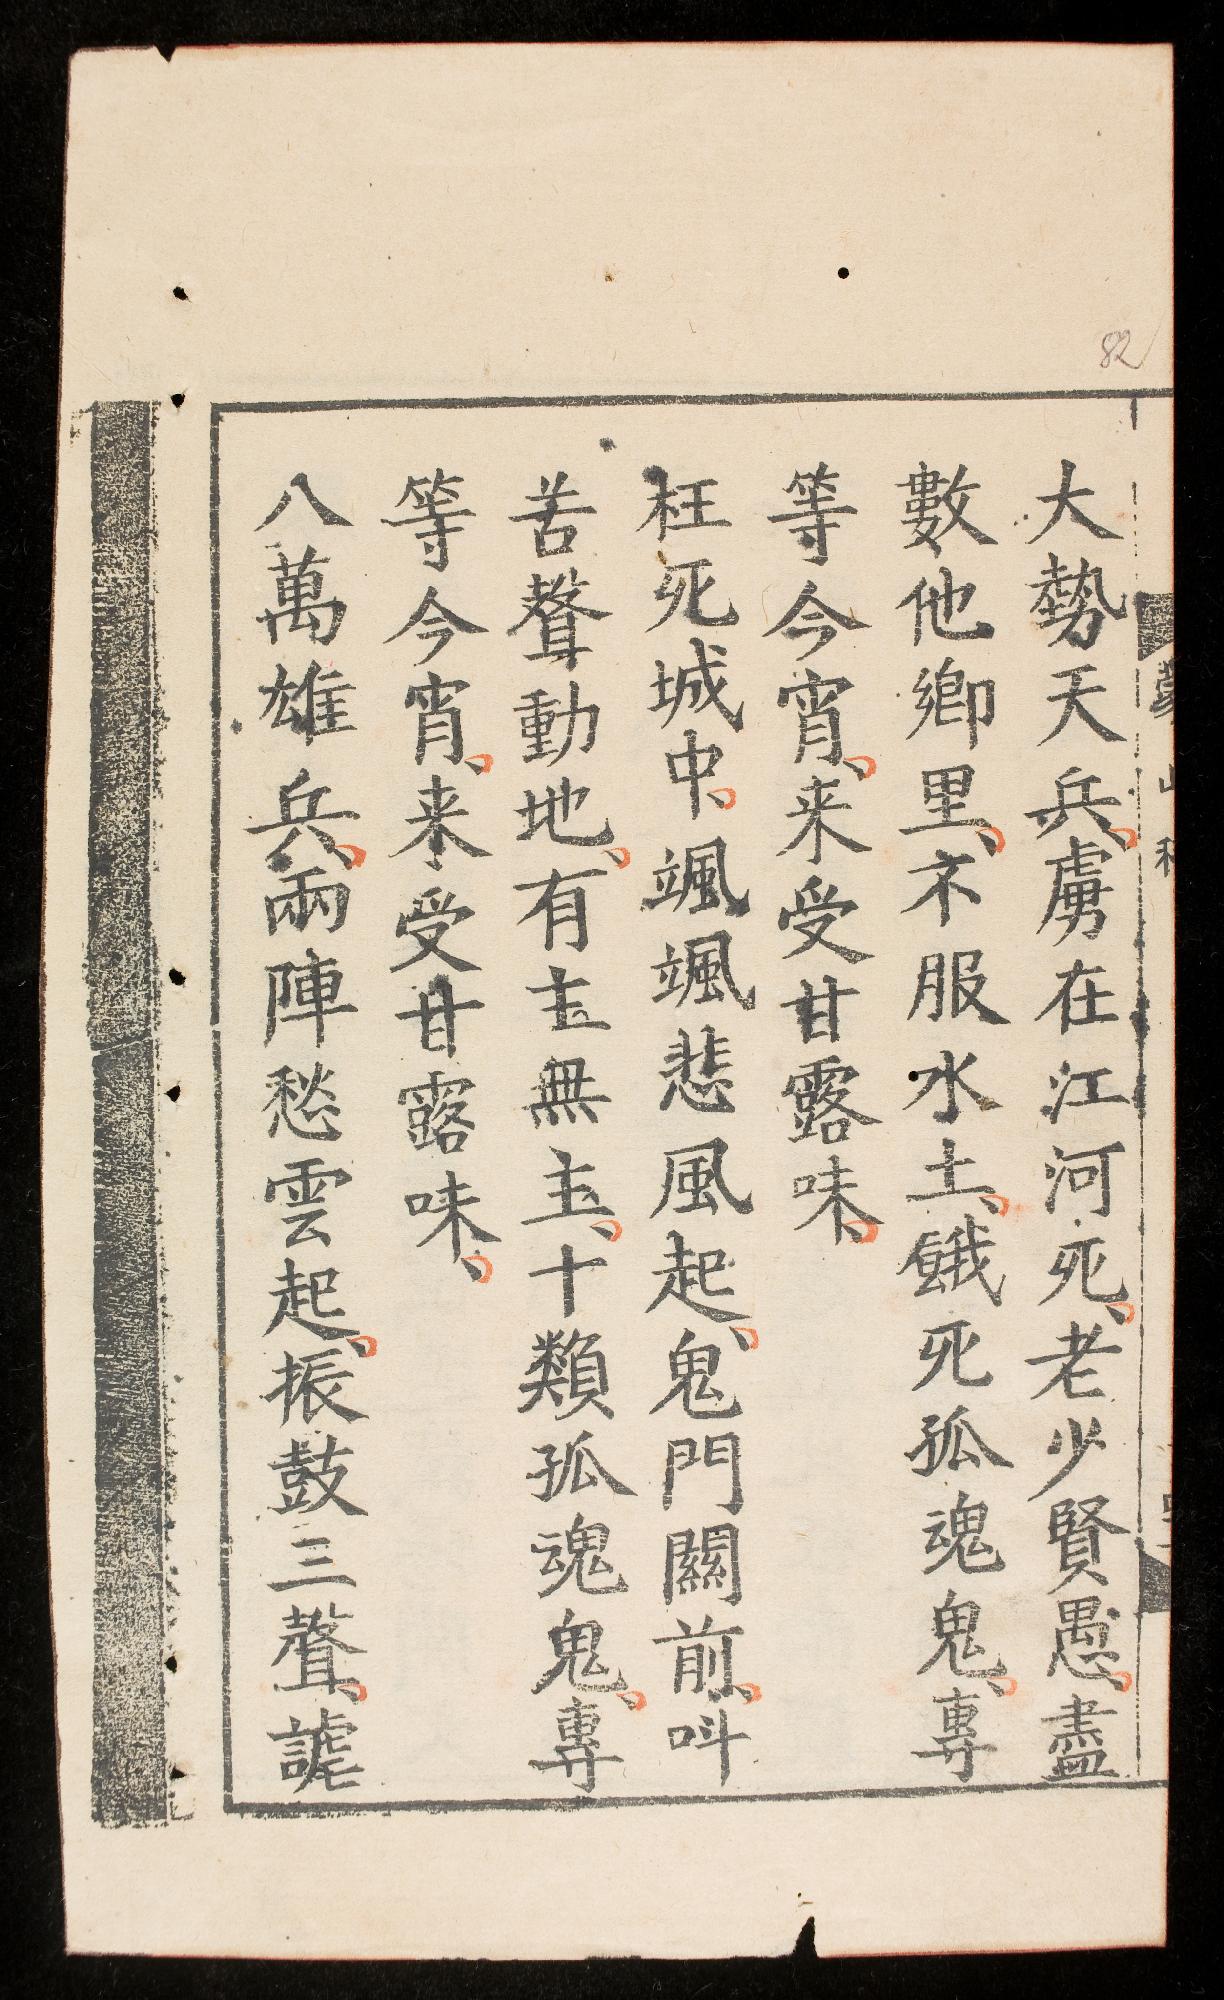 82
大勢天兵、虜在江河死、老少賢愚、盡
數他鄉里、不服水土、餓死孤魂鬼、專
等今宵、来受甘露味、
枉死城中、颯颯悲風起、鬼門關前、呌
苦聲動地、有主無主、十類孤魂鬼、專
等今宵、来受甘露味、
八萬雄兵、兩陣愁雲起、振鼓三聲、謔